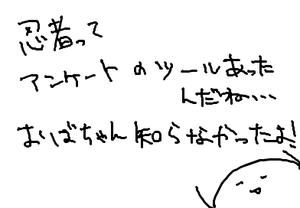 忍者って
アンケートのツールあった
んだね…
おばちゃん知らなかったよ!